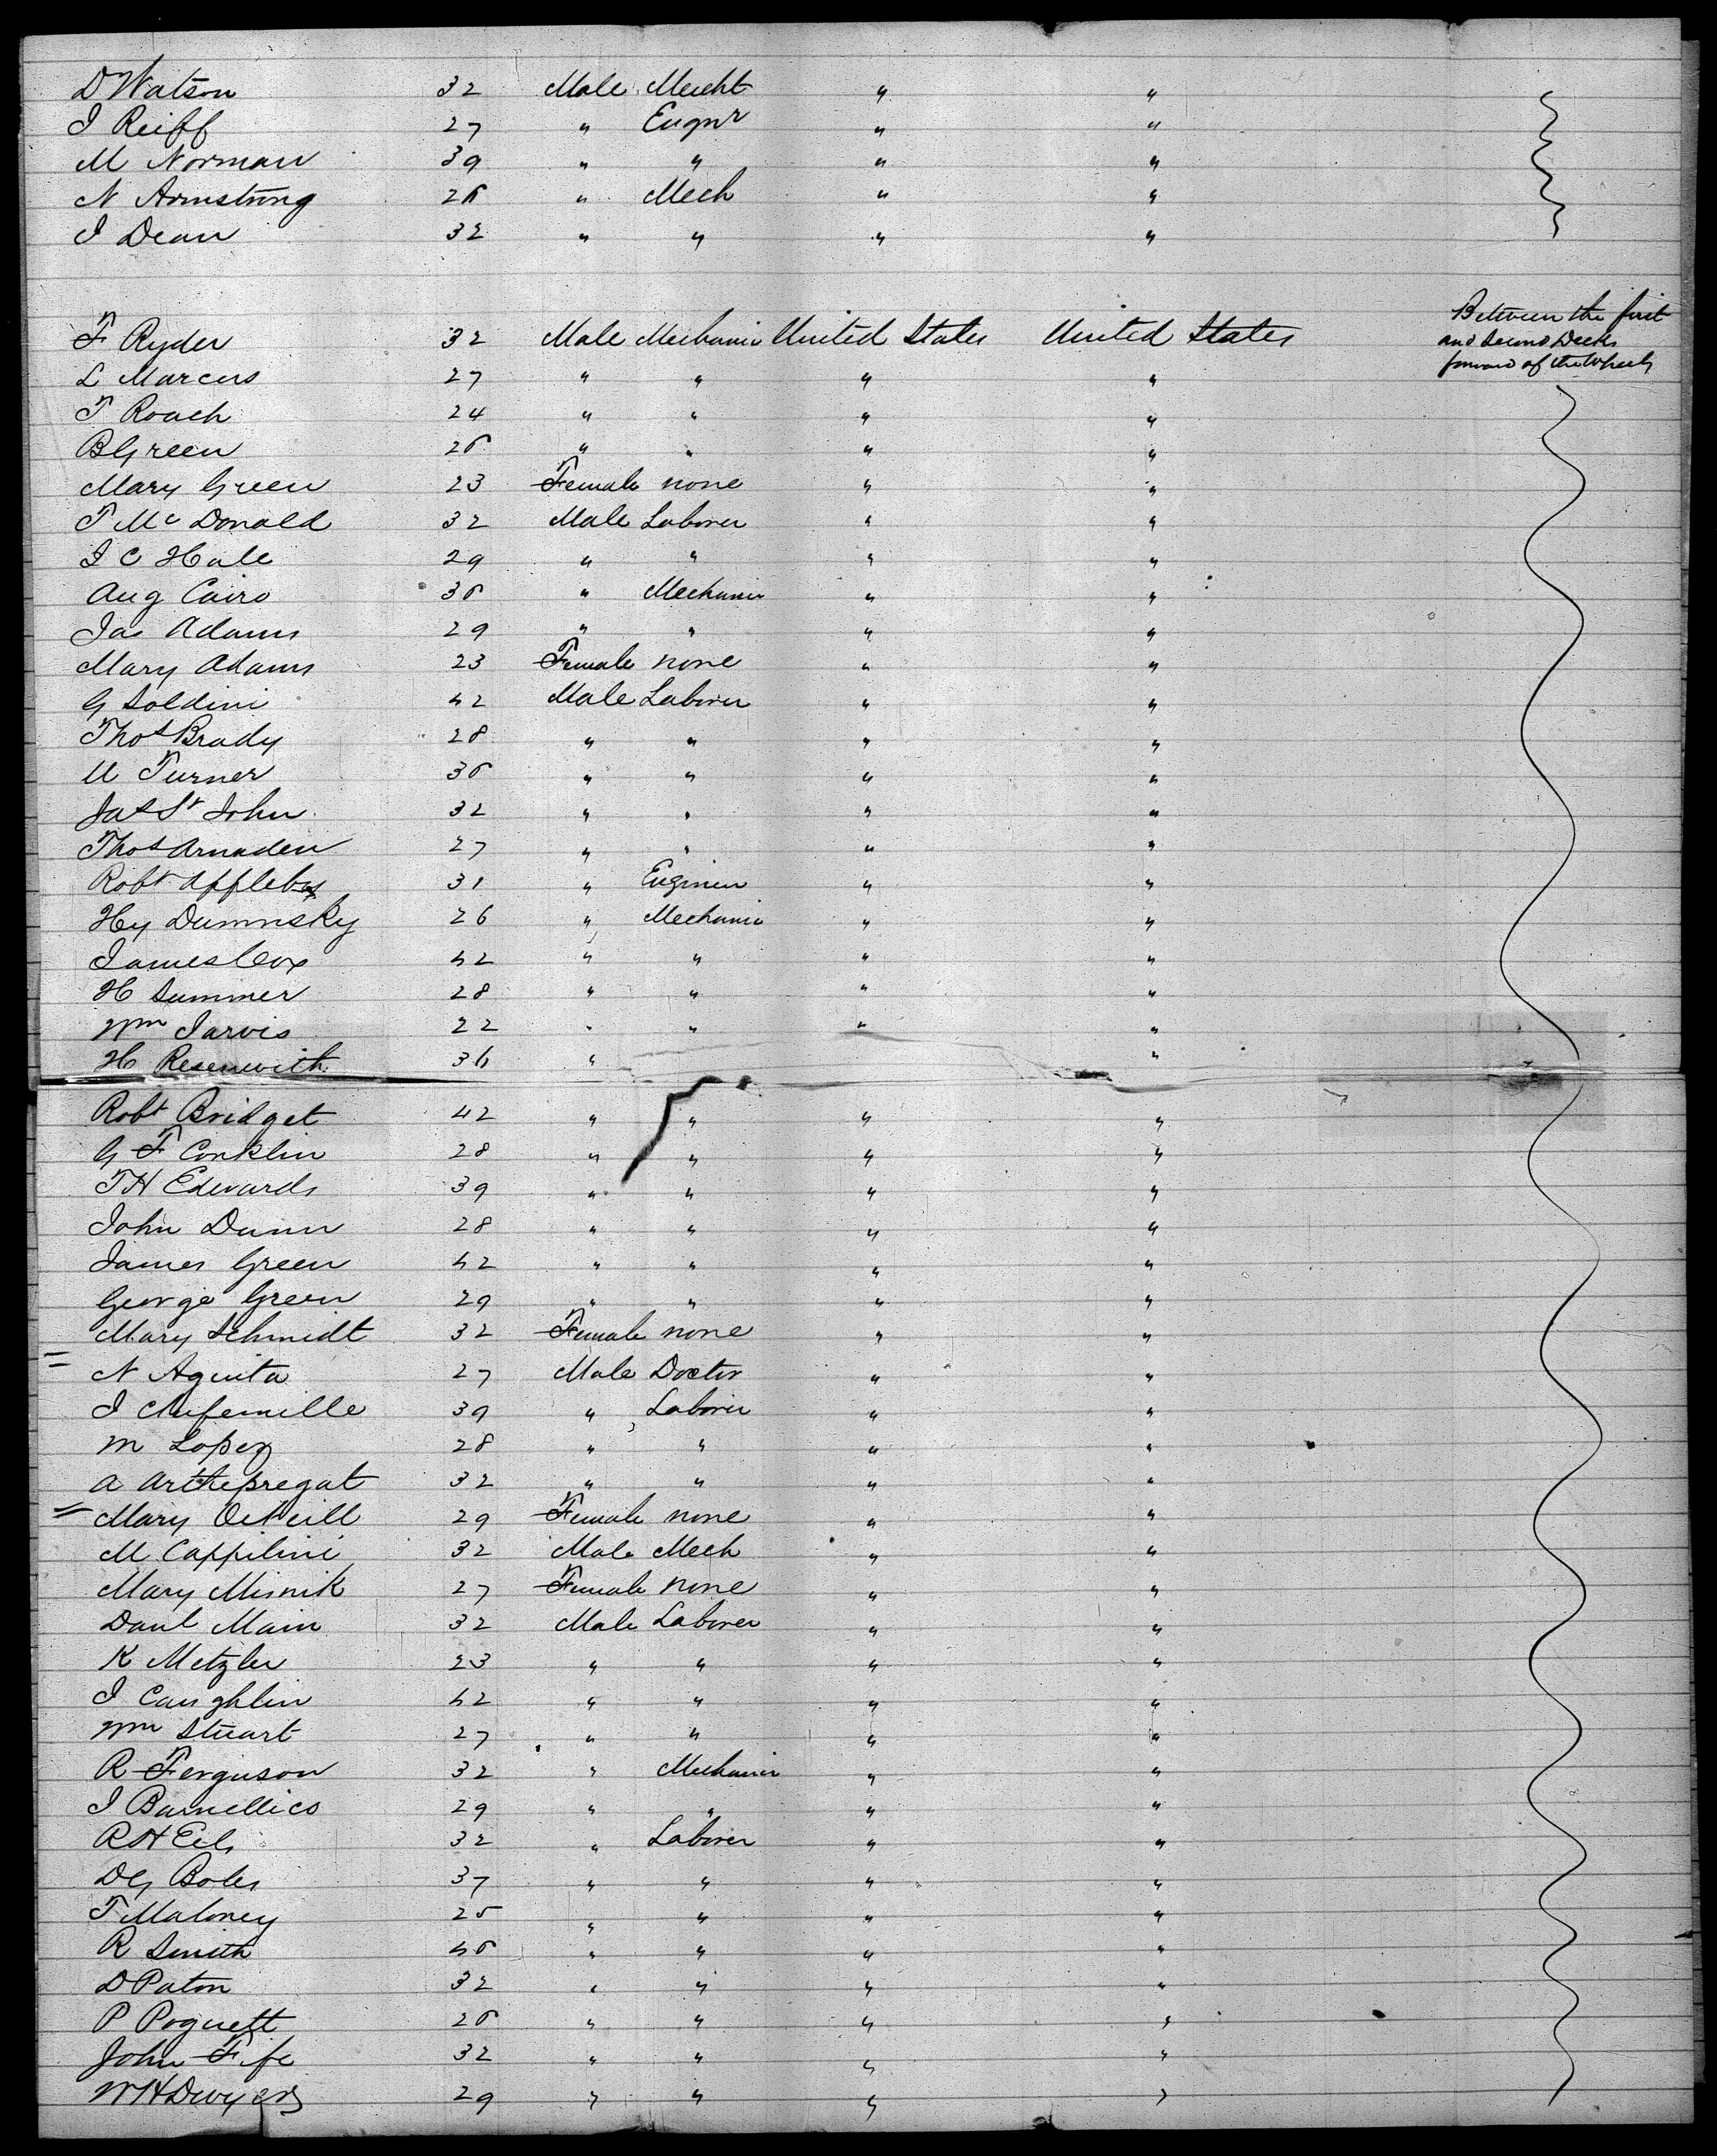 D Watson 32 Male Mercht " "
I Reiff 27 " Engnr " "
M Norman 39 " " " "
N Armstrong 26 " Mech " "
I Dean 32 " " " "
Between the first
F Ryder 32 Male Mechanic United States United States and Second Decks
forward of the Wheels
L Marcus 27 " " " "
T Roach 24 " " " "
B Green 26 " " " "
Mary Green 23 Female none " "
T Mc Donald 32 Male Laborer " "
I C Hale 29 " " " "
Aug Cairo 36 " Mechanic " "
Jas Adams 29 " " " "
Mary Adams 23 Female none " "
G Soldini 42 Male Laborer " "
Thos Brady 28 " " " "
U Turner 36 " " " "
Jas St John 32 " " " "
Thos Arnaden 27 " " " "
Robt Appleby 31 " Engineer " "
Hy Dumnsky 26 " Mechanic " "
James Cox 42 " " " "
H Summer 28 " " " "
Wm Jarvis 22 " " " "
H Resenwith 36 " "
Robt Bridget 42 " " " "
G F Conklin 28 " " " "
T H Edwards 39 " " " "
John Dunn 28 " " " "
James Green 42 " " " "
George Green 29 " " " "
Mary Schmidt 32 Female none " "
N Aguita 27 Male Doctor " "
I 39 " Laborer " "
M Lopez 28 " " " "
A 32 " " " "
Mary O'Neill 29 Female none " "
M Cappilini 32 Male Mech " "
Mary Misnik 27 Female none " "
Danl Main 32 Male Laborer " "
K Metzler 23 " " " "
I Caughlin 42 " " " "
Wm Stuart 27 " " " "
R Ferguson 32 " Mechanic " "
I Barnellico 29 " " " "
R H Eels 32 " Laborer " "
D G Boles 37 " " " "
T Maloney 25 " " " "
R Smith 46 " " " "
D Paton 32 " " " "
P Poguett 26 " " " "
John Fife 32 " " " "
W H Dwyer 29 " " " "